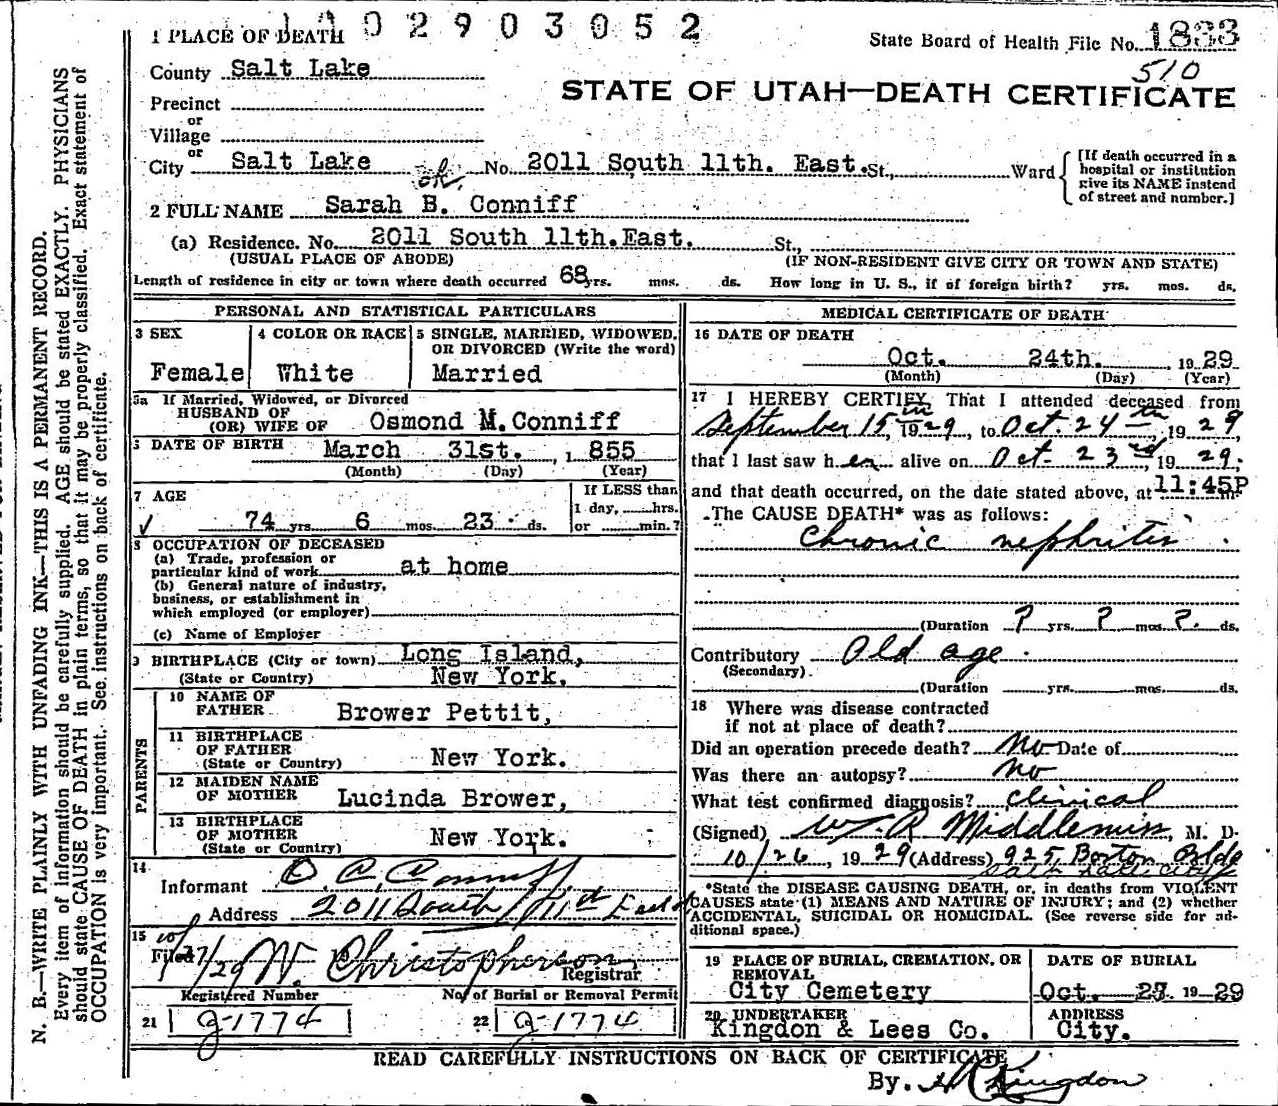 02903052
1 PLACE OF DEATH
State Board of Health File No. 1833
510
County Salt Lake
STATE OF UTAH—DEATH CERTIFICATE
Precinct
or
Village
or
City Salt Lake No. 2011 South 11th. East. St., Ward
[If death occurred in a hospital or institution give its NAME instead of street and number.]
ok
2 FULL NAME Sarah B. Conniff
(a) Residence. No. 2011 South 11th. East. St.,
(USUAL PLACE OF ABODE) (IF NON-RESIDENT GIVE CITY OR TOWN AND STATE)
Length of residence in city or town where death occurred 68 yrs. mos. ds. How long in U. S., if of foreign birth? yrs. mos. ds.
PERSONAL AND STATISTICAL PARTICULARS
3 SEX
Female
4 COLOR OR RACE
White
5 SINGLE, MARRIED, WIDOWED, OR DIVORCED (Write the word)
Married
5a If Married, Widowed, or Divorced
HUSBAND OF
(OR) WIFE OF Osmond M. Conniff
6 DATE OF BIRTH March 31st. , 1855
(Month) (Day) (Year)
7 AGE
74 yrs. 6 mos. 23 ds.
If LESS than
1 day, hrs.
or min.?
8 OCCUPATION OF DECEASED
(a) Trade, profession or
particular kind of work at home
(b) General nature of industry,
business, or establishment in
which employed (or employer)
(c) Name of Employer
9 BIRTHPLACE (City or town) Long Island,
(State or Country) New York.
PARENTS
10 NAME OF
FATHER Brower Pettit,
11 BIRTHPLACE
OF FATHER
(State or Country) New York.
12 MAIDEN NAME
OF MOTHER Lucinda Brower,
13 BIRTHPLACE
OF MOTHER
(State or Country) New York.
14
Informant O. C. Conniff
Address 2011 South 11th East
15
Filed /29 W. Christopherson
Registrar
Registered Number No. of Burial or Removal Permit
21 G-1774 22 G-1774
MEDICAL CERTIFICATE OF DEATH
16 DATE OF DEATH
Oct. 24th. , 1929
(Month) (Day) (Year)
17 I HEREBY CERTIFY, That I attended deceased from
September 15th, 1929, to Oct. 24th 1929,
that I last saw her alive on Oct. 23rd, 1929;
and that death occurred, on the date stated above, at 11:45P m.
The CAUSE DEATH* was as follows:
Chronic nephritis
(Duration ? yrs. ? mos ? ds.
Contributory Old age.
(Secondary)
(Duration yrs. mos. ds.
18 Where was disease contracted
if not at place of death?
Did an operation precede death? No Date of
Was there an autopsy? No
What test confirmed diagnosis? Clinical
(Signed) W. R. Middlemiss, M. D.
10/26, 1929 (Address) 925 Boston Bldg
Salt Lake City
*State the DISEASE CAUSING DEATH, or, in deaths from VIOLENT
CAUSES state (1) MEANS AND NATURE OF INJURY; and (2) whether
ACCIDENTAL, SUICIDAL OR HOMICIDAL. (See reverse side for ad-
ditional space.)
19 PLACE OF BURIAL, CREMATION, OR
REMOVAL
City Cemetery
DATE OF BURIAL
Oct. 27. 1929
20 UNDERTAKER
Kingdon & Lees Co.
ADDRESS
City.
READ CAREFULLY INSTRUCTIONS ON BACK OF CERTIFICATE
By. H Kingdon
N. B.—WRITE PLAINLY WITH UNFADING INK—THIS IS A PERMANENT RECORD.
Every item of information should be carefully supplied. AGE should be stated EXACTLY. PHYSICIANS
should state CAUSE OF DEATH in plain terms, so that it may be properly classified. Exact statement of
OCCUPATION is very important. See instructions on back of certificate.